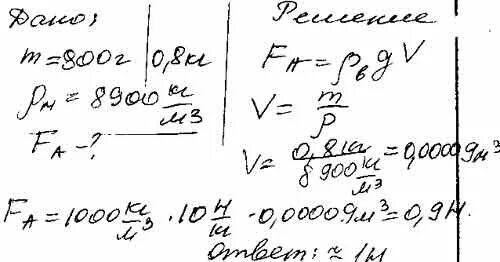 Дано:
m = 800г | 0,8кг
ρм = 8900 кг/м³
FА - ?
Решение
FА = ρв g V
V = m/ρ
V = 0,8кг / 8900 кг/м³ = 0,00009м³
FА = 1000 кг/м³ · 10 Н/кг · 0,00009м³ = 0,9Н.
Ответ: ≈ 1Н